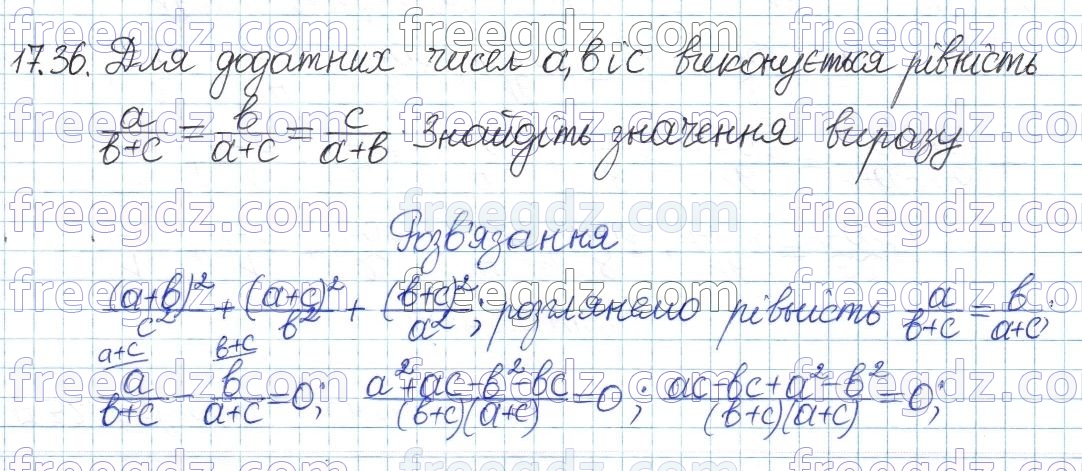 17.36. Для додатних чисел a, b і c виконується рівність
a/(b+c) = b/(a+c) = c/(a+b). Знайдіть значення виразу
Розв'язання
(a+b)²/c² + (a+c)²/b² + (b+c)²/a²; розглянемо рівність a/(b+c) = b/(a+c);
a+c b+c
a/(b+c) - b/(a+c) = 0; (a²+ac-b²-bc)/((b+c)(a+c)) = 0; (ac-bc+a²-b²)/((b+c)(a+c)) = 0;
freegdz.com